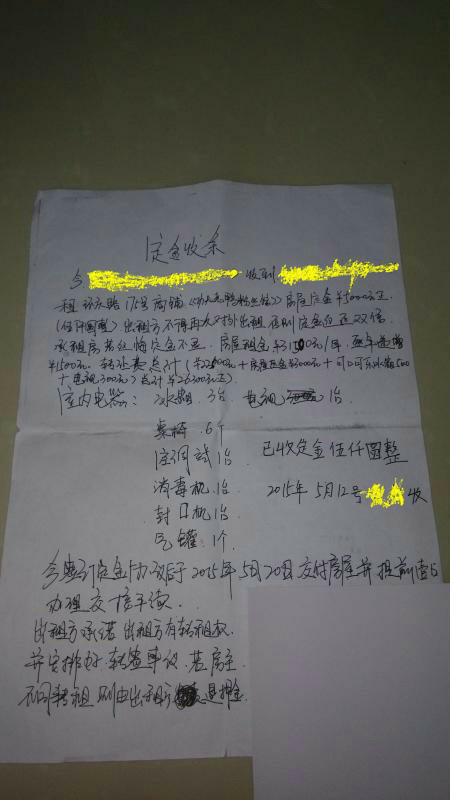 定金收条
今 收到
租环城路175号商铺 房屋定金￥5000元正
(伍仟圆整) 出租方不得再次对外出租否则定金应返双倍
承租房若反悔定金不返. 房屋租金 元/年. 逐年递增
￥1500元. 转让费总计 (￥22000元+房屋定金 元+可口可乐冰箱500
+电视300元) 总计￥26300元正)
室内电器: 冰箱 3台 电视 1台
桌椅 6个
空调 1台
消毒机 1台
封口机 1台
气罐 1个
已收定金伍仟圆整
2015年5月12号 收
今 订定金协议后于2015年5月20日交付房屋并提前
办理交接手续.
出租方承诺出租方有转租权
并安排好转 事仪. 若房主
不同转租则由出租 退押金